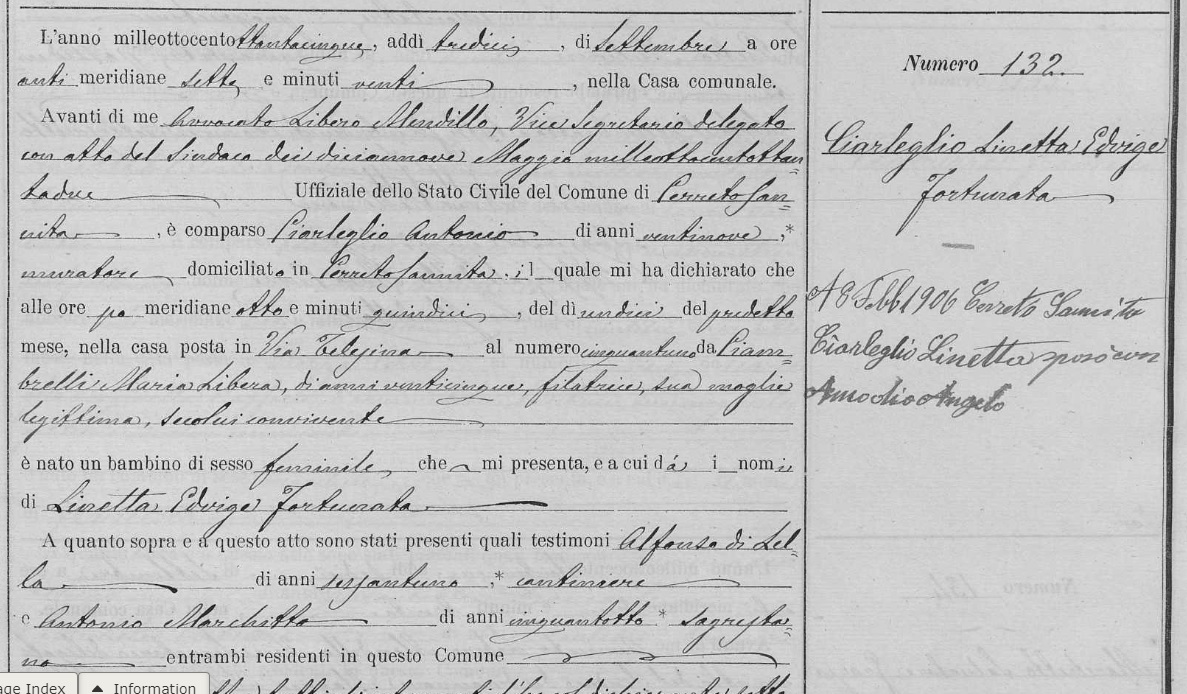 L'anno milleottocento ottantacinque, addì tredici, di Settembre a ore
anti meridiane sette e minuti venti, nella Casa comunale.
Avanti di me Avvocato Libero Mendillo, Vice Segretario delegato
con atto del Sindaco dei diciannove Maggio milleottocentottan
tadue Uffiziale dello Stato Civile del Comune di Cerreto San=
nita, è comparso Ciarleglio Antonio di anni ventinove,*
muratore domiciliato in Cerreto Sannita, il quale mi ha dichiarato che
alle ore po meridiane otto e minuti quindici, del dì undici del predetto
mese, nella casa posta in Via Telesina al numero cinquantuno da Ciam=
brelli Maria Libera, di anni venticinque, filatrice, sua moglie
legittima, secolui convivente
è nato un bambino di sesso feminile, che mi presenta, e a cui dà i nomi
di Linetta Edvige Fortunata
A quanto sopra e a questo atto sono stati presenti quali testimoni Alfonso di Lel=
la di anni sessantuno,* cantiniere
e Antonio Marchitto di anni cinquantotto * sagresta=
no entrambi residenti in questo Comune
Numero 132.
Ciarleglio Linetta Edvige
Fortunata
A 8 Febb 1906 Cerreto Sannita
Ciarleglio Linetta sposò con
Amodio Angelo
age Index
Information